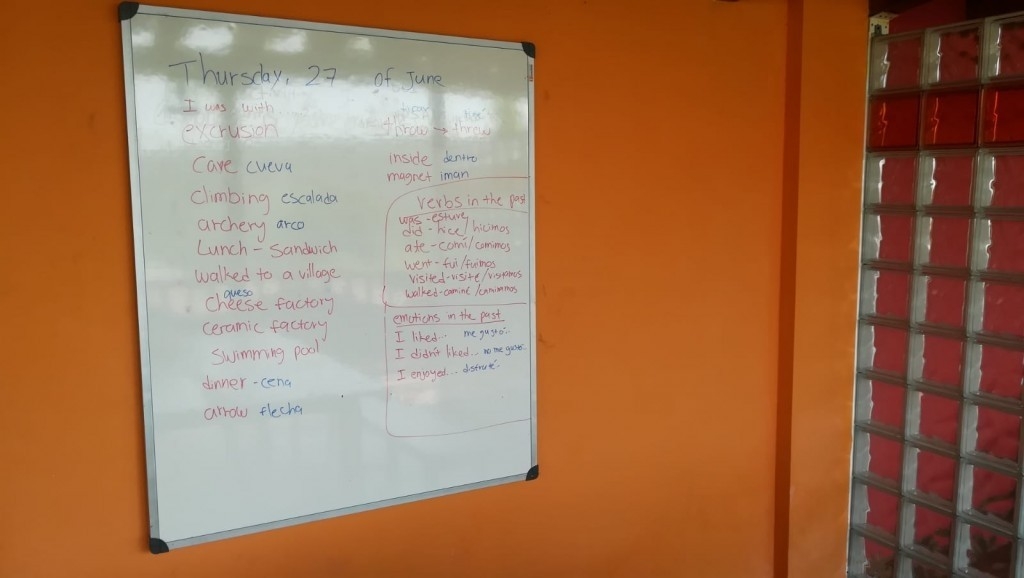 Thursday, 27 of June
I was with
excrusion
Cave cueva
Climbing escalada
archery arco
Lunch - Sandwich
walked to a village
queso
Cheese factory
ceramic factory
Swimming pool
dinner - cena
arrow flecha
throw → threw
inside dentro
magnet iman
verbs in the past
was - estuve
did - hice/hicimos
ate - comí/comimos
went - fui/fuimos
visited - visité/visitamos
walked - caminé/
emotions in the past
I liked... me gustó..
I didn't liked... no me gustó..
I enjoyed... disfruté..